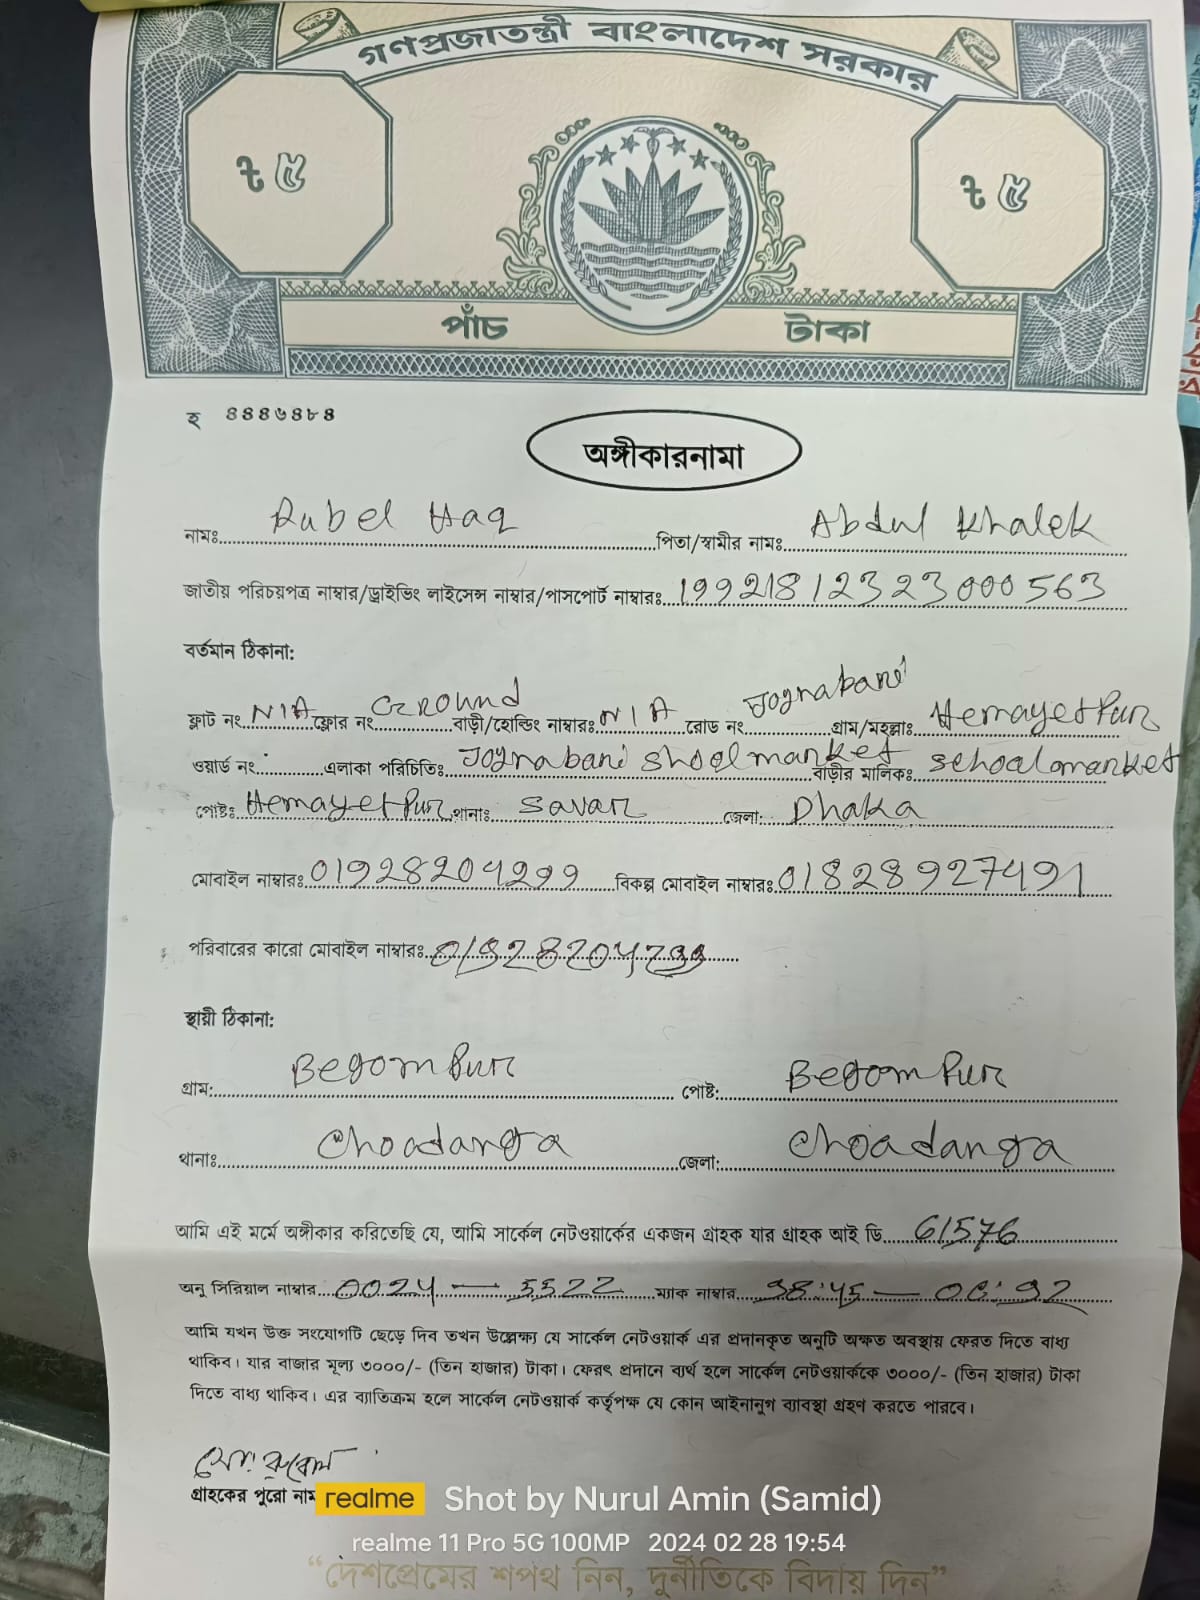 গণপ্রজাতন্ত্রী বাংলাদেশ সরকার
৳ ৫ ৳ ৫
পাঁচ টাকা
হ ৪৪৪৬৪৮৪
অঙ্গীকারনামা
নামঃ Rubel Haq পিতা/স্বামীর নামঃ Abdul Khalek
জাতীয় পরিচয়পত্র নাম্বার/ড্রাইভিং লাইসেন্স নাম্বার/পাসপোর্ট নাম্বারঃ 19921812323000563
বর্তমান ঠিকানা:
ফ্লাট নং N/A ফ্লোর নং Ground বাড়ী/হোল্ডিং নাম্বারঃ N/A রোড নং Jognabani গ্রাম/মহল্লাঃ HemayetPur
ওয়ার্ড নং এলাকা পরিচিতিঃ Jognabani shoolmarket বাড়ীর মালিকঃ schoolmarket
পোষ্টঃ HemayetPur থানাঃ Savar জেলা: Dhaka
মোবাইল নাম্বারঃ 01928204299 বিকল্প মোবাইল নাম্বারঃ 01828927491
পরিবারের কারো মোবাইল নাম্বারঃ 01928204299
স্থায়ী ঠিকানা:
গ্রাম: BegomPur পোষ্ট: BegomPur
থানাঃ Choadanga জেলা: Choadanga
আমি এই মর্মে অঙ্গীকার করিতেছি যে, আমি সার্কেল নেটওয়ার্কের একজন গ্রাহক যার গ্রাহক আই ডি 61576
অনু সিরিয়াল নাম্বার 0024 — 5522 ম্যাক নাম্বার 38:45 — 0C:92
আমি যখন উক্ত সংযোগটি ছেড়ে দিব তখন উল্লেক্ষ্য যে সার্কেল নেটওয়ার্ক এর প্রদানকৃত অনুটি অক্ষত অবস্থায় ফেরত দিতে বাধ্য
থাকিব। যার বাজার মূল্য ৩০০০/- (তিন হাজার) টাকা। ফেরৎ প্রদানে ব্যর্থ হলে সার্কেল নেটওয়ার্ককে ৩০০০/- (তিন হাজার) টাকা
দিতে বাধ্য থাকিব। এর ব্যাতিক্রম হলে সার্কেল নেটওয়ার্ক কর্তৃপক্ষ যে কোন আইনানুগ ব্যাবস্থা গ্রহণ করতে পারবে।
মোঃ রুবেল
গ্রাহকের পুরো নাম
realme Shot by Nurul Amin (Samid)
realme 11 Pro 5G 100MP 2024 02 28 19:54
“দেশপ্রেমের শপথ নিন, দুর্নীতিকে বিদায় দিন”